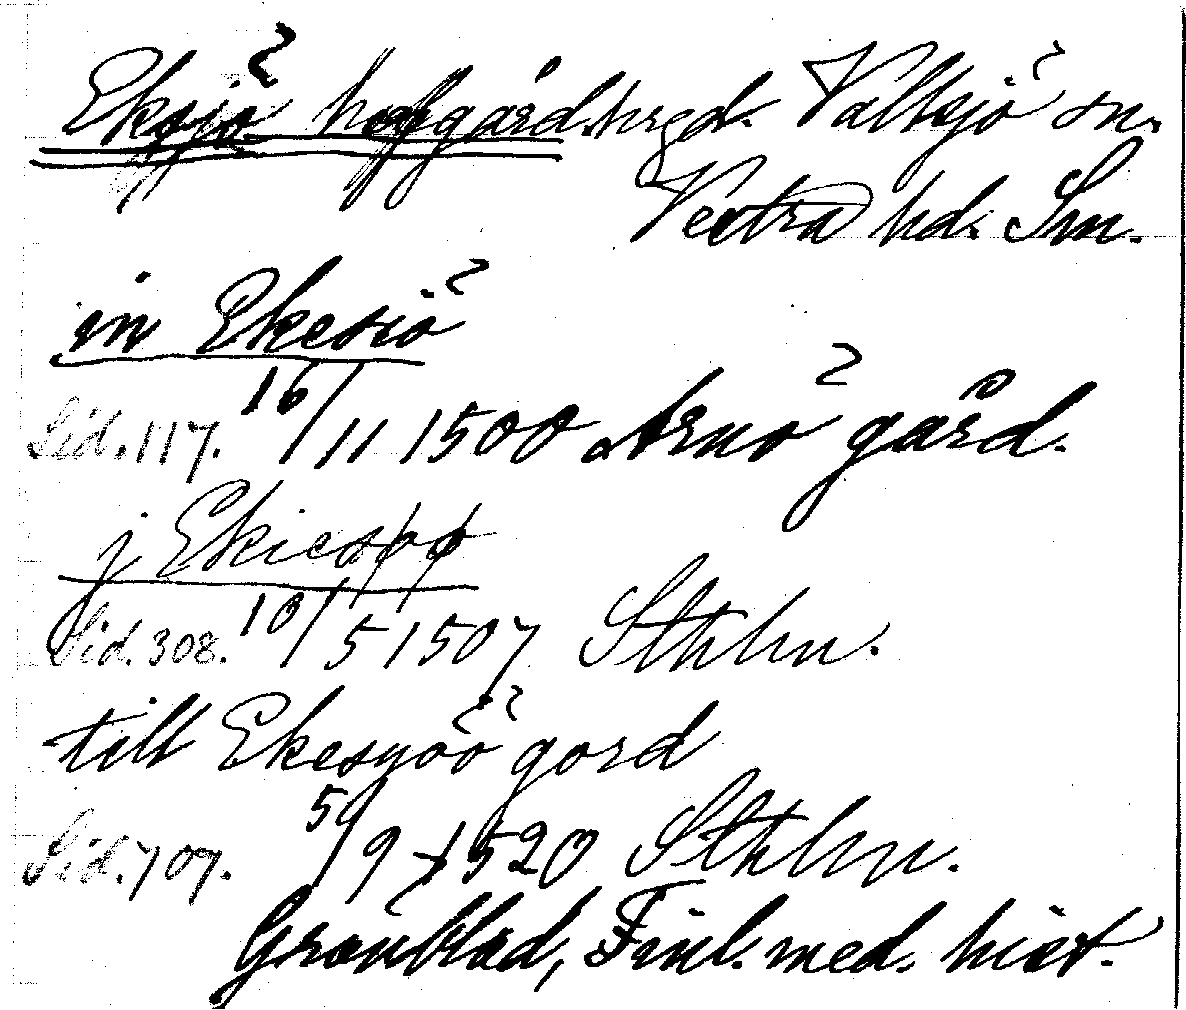 Eksjö hofgård. hrgd. Vallsjö sn.
Vestra hd. Sm.
in Ekesiö
Sid. 117. 16/11 1500 Arnö gård.
j Ekiesøø
Sid. 308. 10/5 1507 Sthlm.
till Ekesyöö gord
Sid. 707. 5/9 1520 Sthlm.
Grönblad, Finl. med. hist.